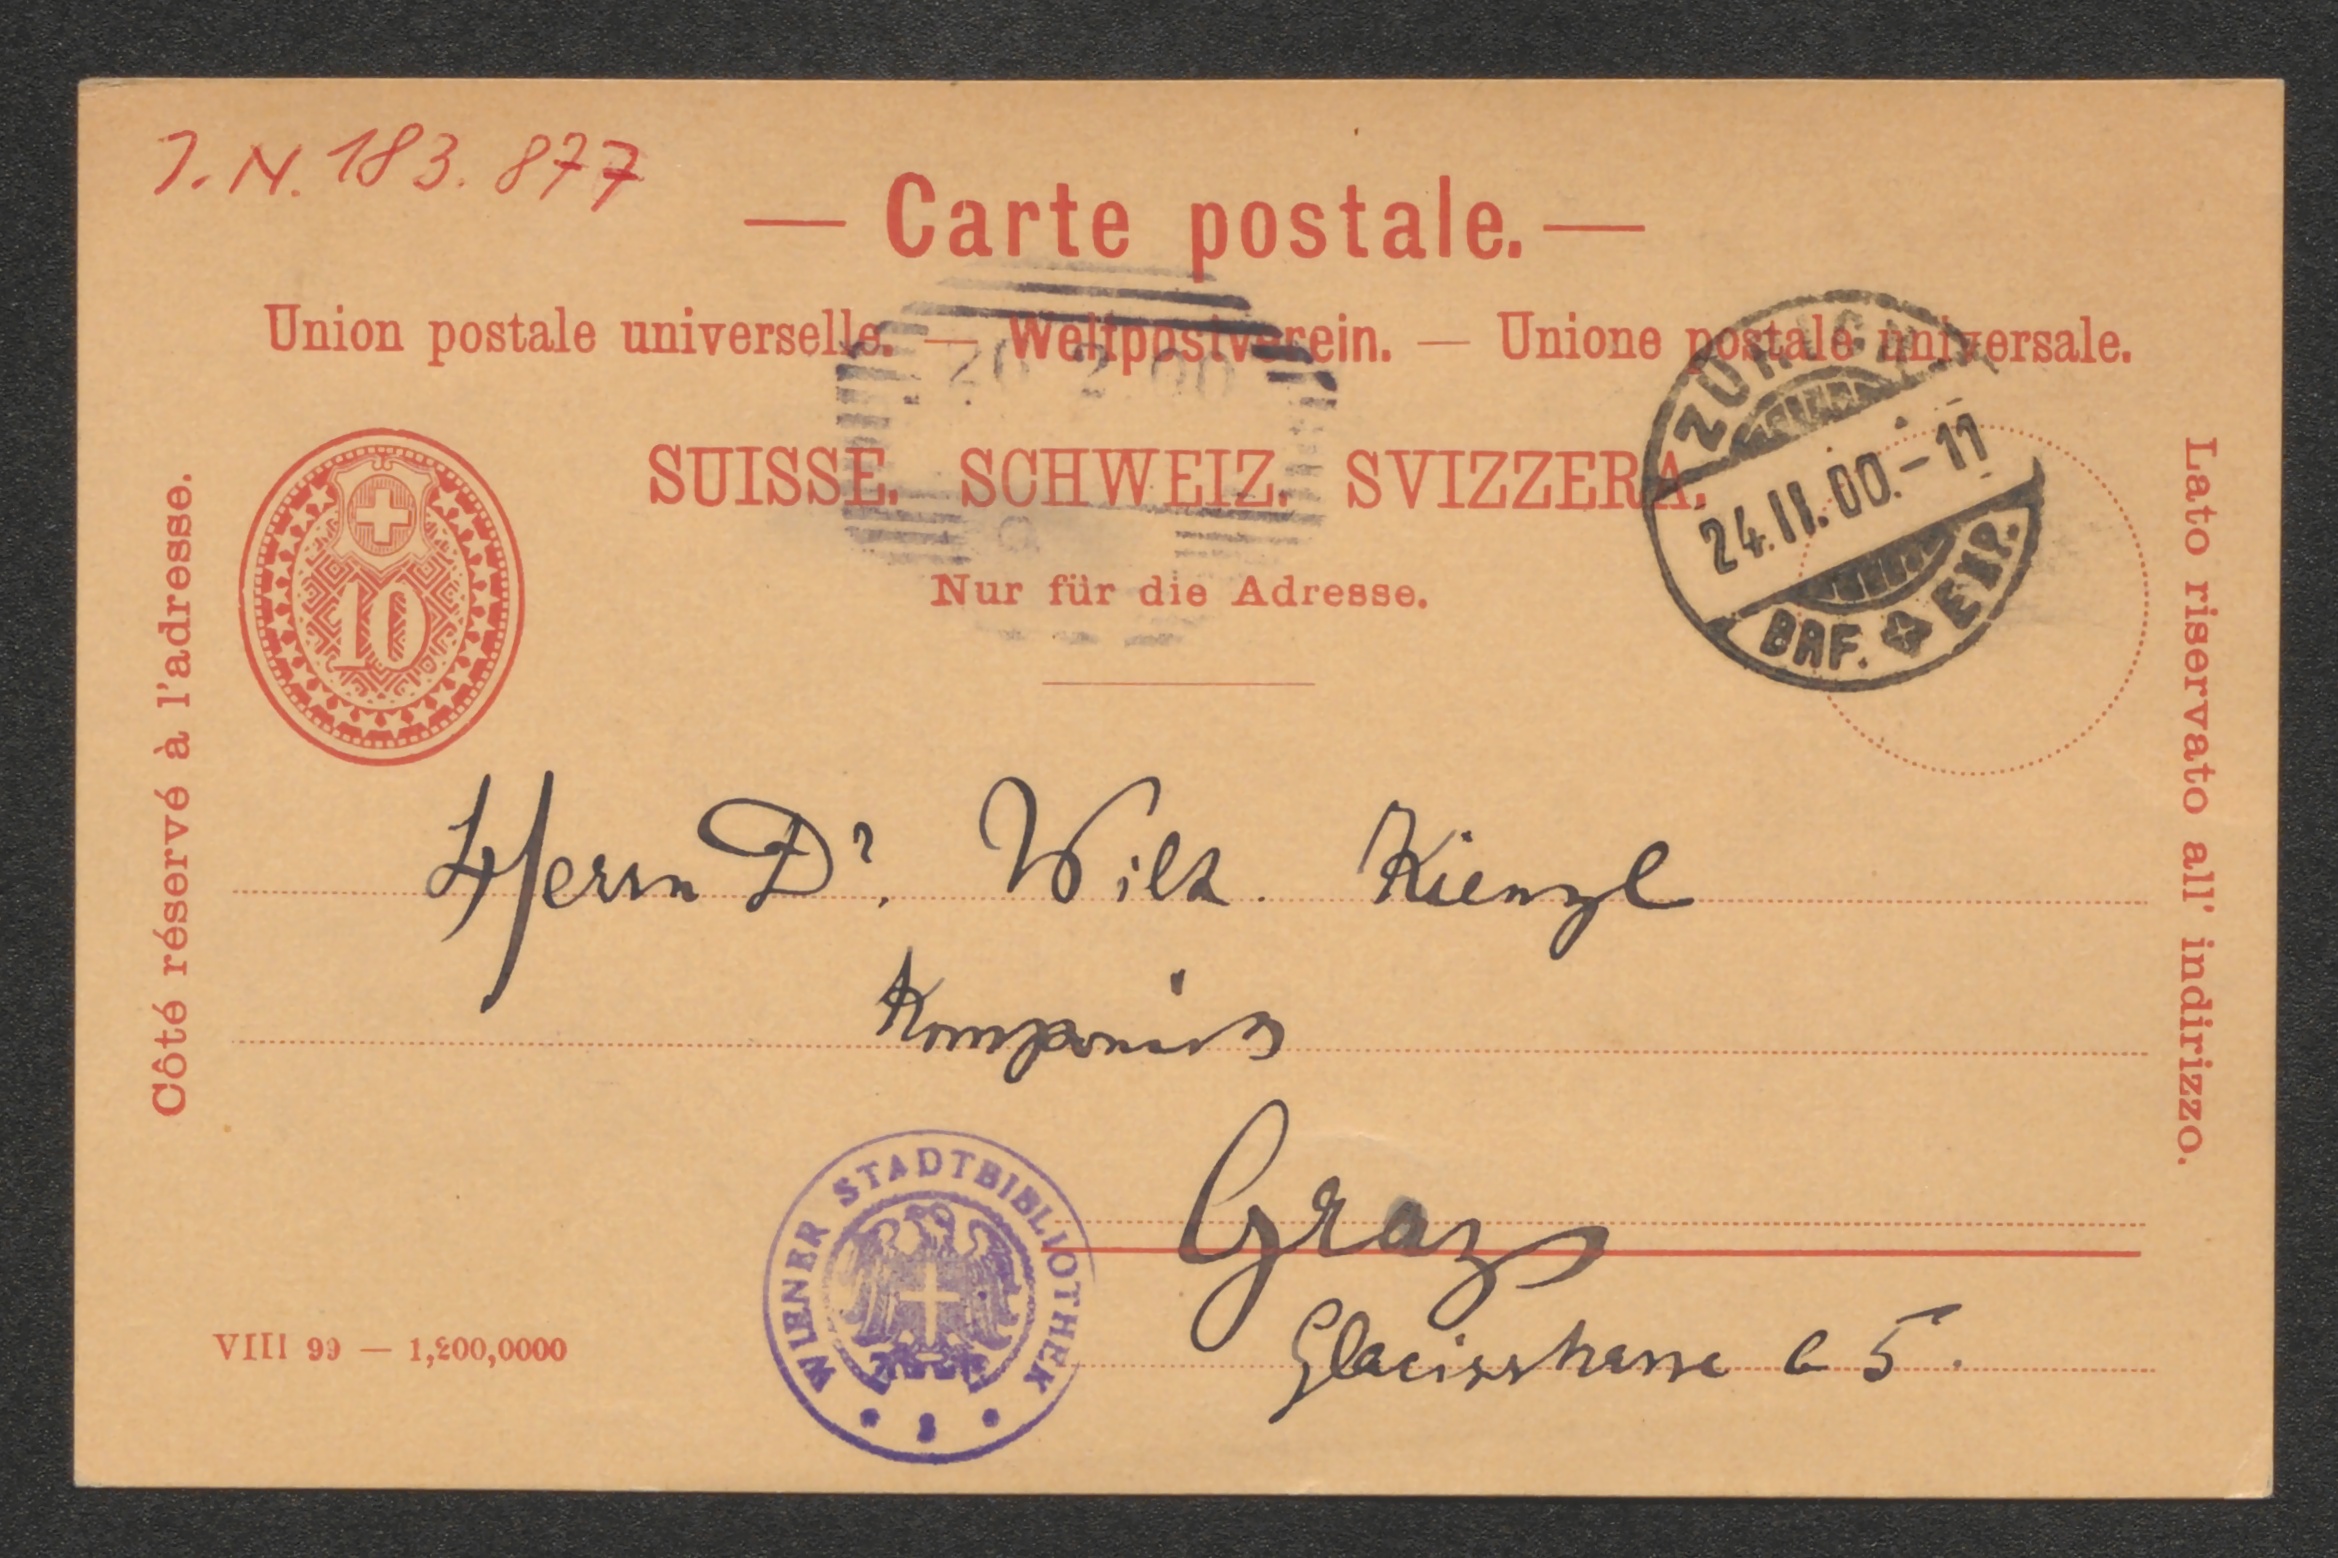 J. N. 183.877
— Carte postale. —
Union postale universelle. — Weltpostverein. — Unione postale universale.
SUISSE. SCHWEIZ. SVIZZERA.
Nur für die Adresse.
Côté réservé à l'adresse.
Lato riservato all' indirizzo.
10
ZÜRICH
24.II.00.-11
BRF. EXP.
2 00
Herrn Dr. Wilh. Kienzl
Komponist
Graz
Glacisstrasse 5.
WIENER STADTBIBLIOTHEK
VIII 99 — 1,200,0000